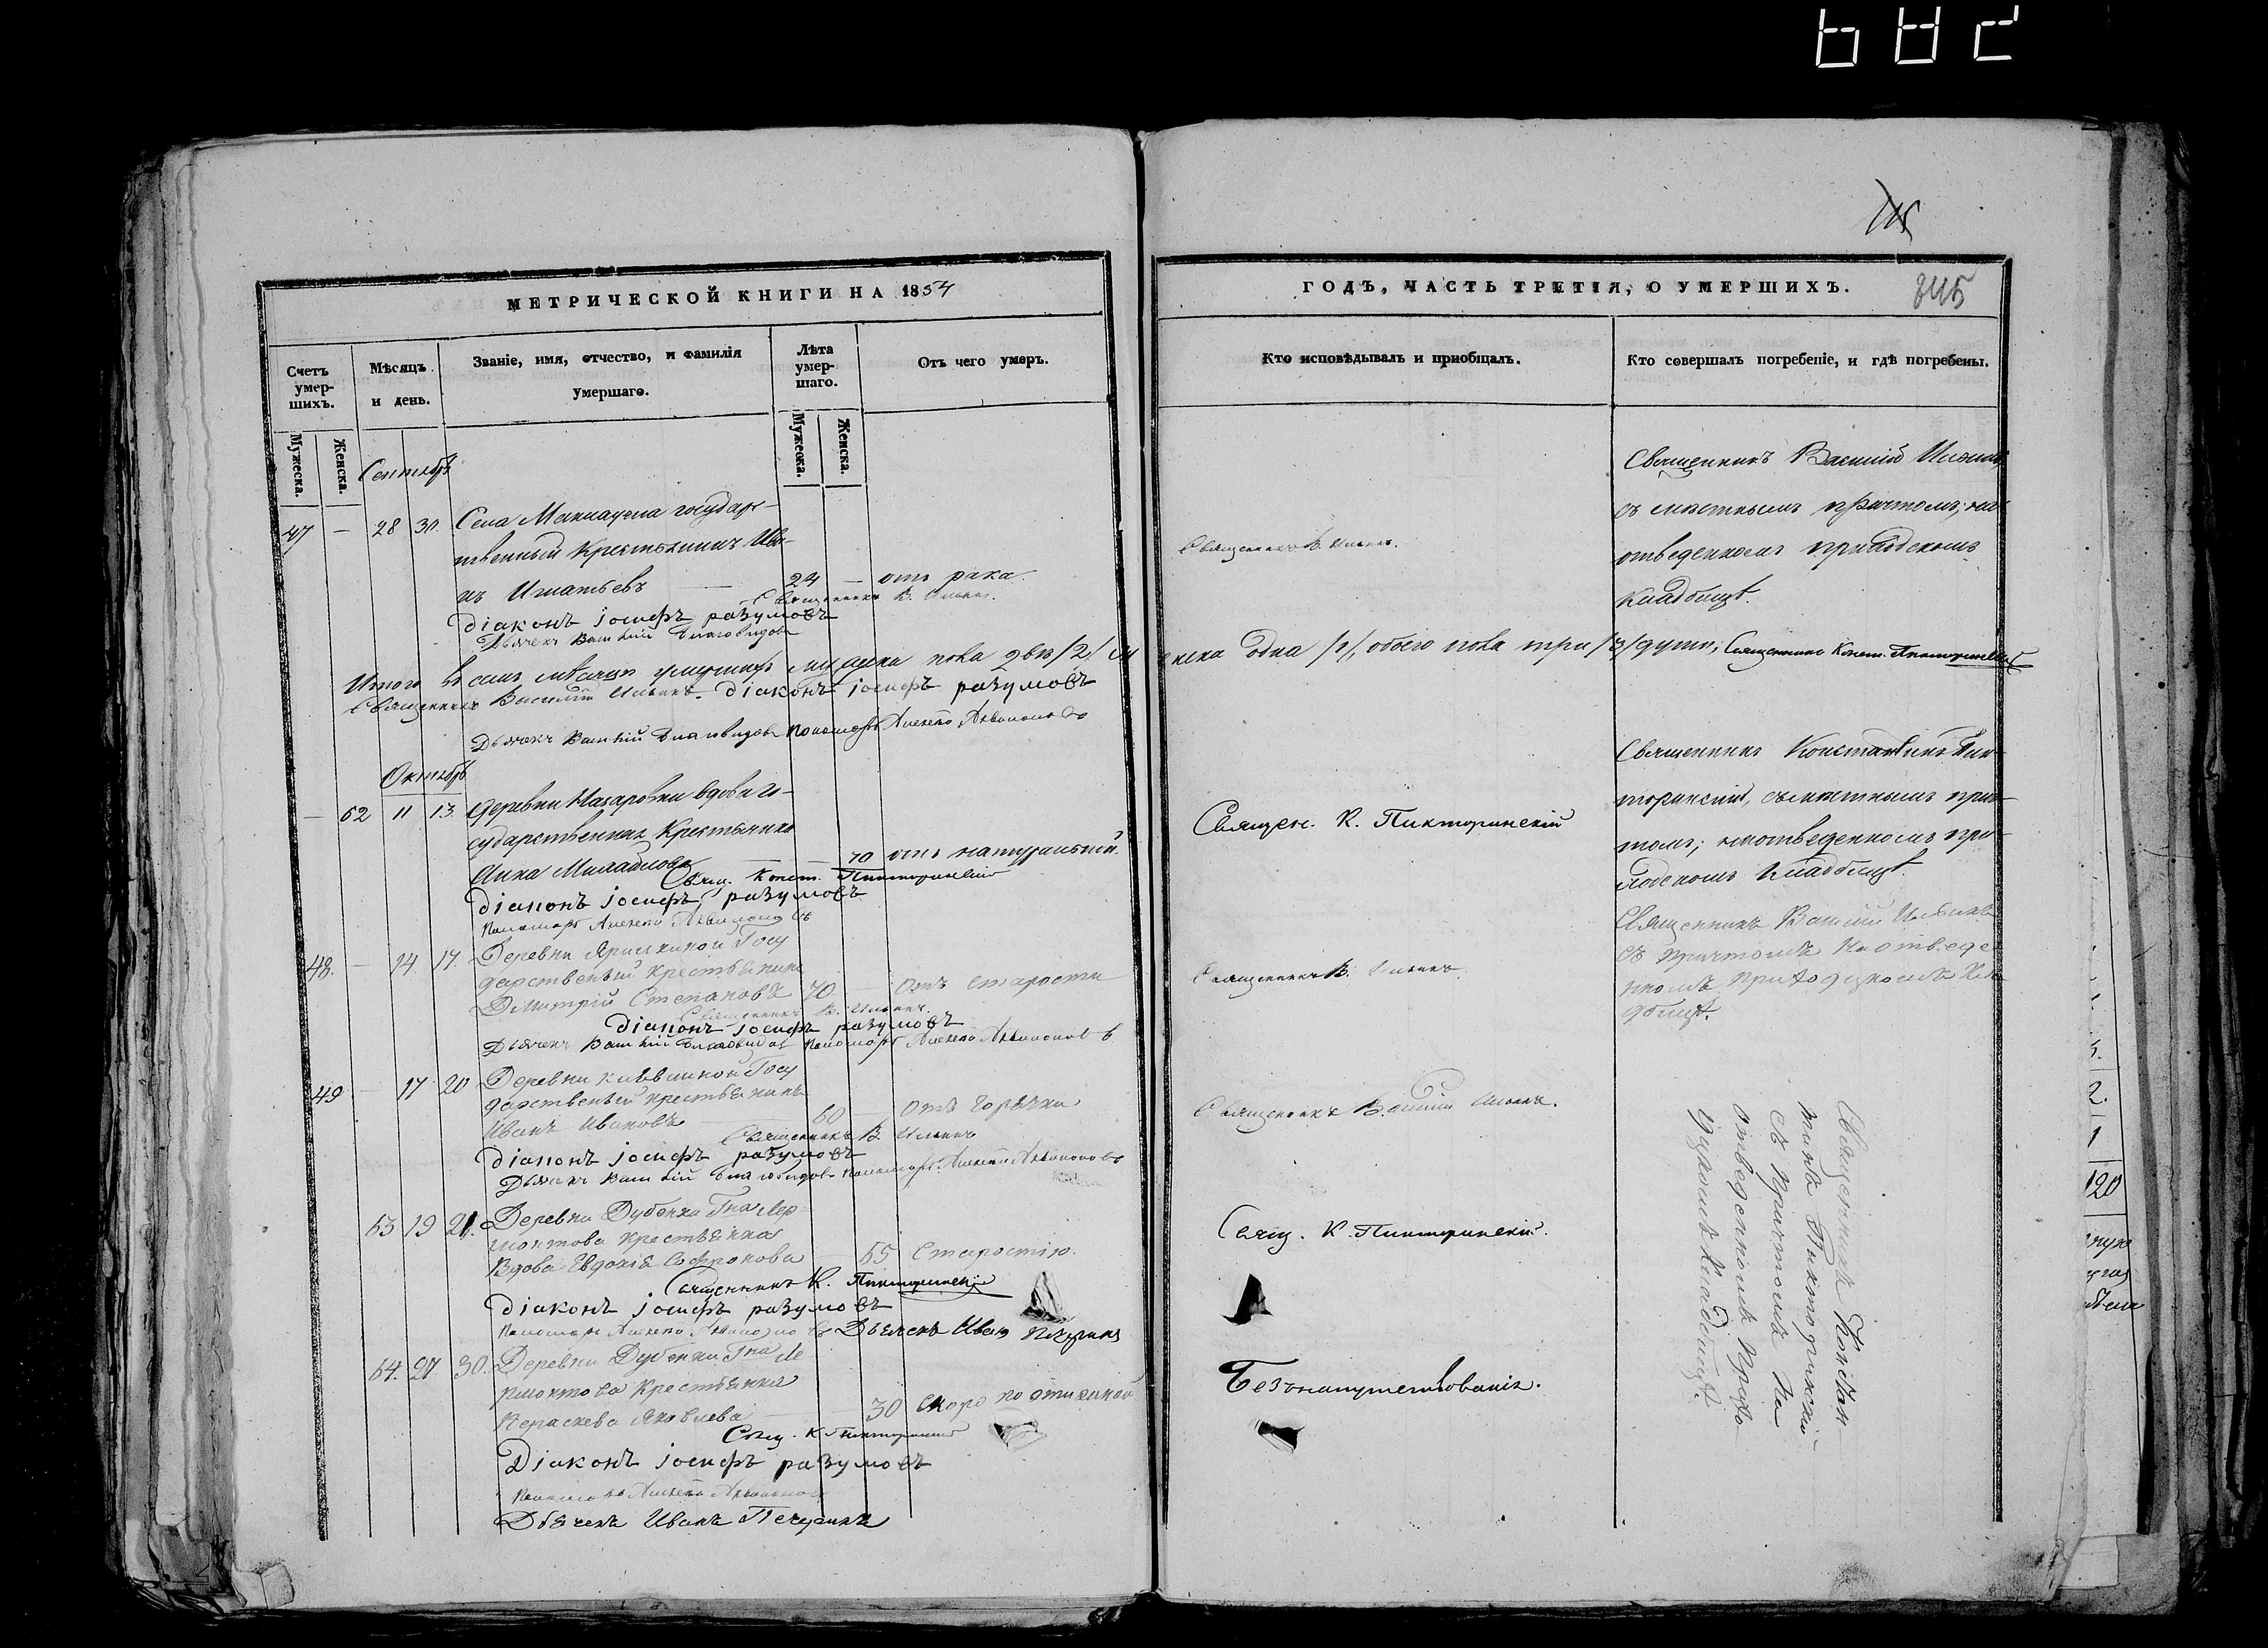 115
МЕТРИЧЕСКОЙ КНИГИ НА 1854
ГОДЪ, ЧАСТЬ ТРЕТІЯ, О УМЕРШИХЪ.
845
Счетъ умер-шихъ.
Мѣсяцъ и день.
Званіе, имя, отчество, и фамилія умершаго.
Лѣта умер-шаго.
Отъ чего умеръ.
Кто исповѣдывалъ и приобщалъ.
Кто совершалъ погребеніе, и гдѣ погребены.
Мужеска.
Женска.
Мужеска.
Женска.
Сентябрь
47 — 28 30. Села государ-
ственный Крестьянинъ Ива-
нъ Игнатьевъ — 24 — отъ рака.
Священникъ В. Ильинъ.
Діаконъ Іосифъ разумовъ
Дьячекъ Василій Благовидовъ
Священникъ В. Ильинъ.
Священникъ Василій Ильинъ
съ мѣстнымъ причтомъ, на
отведенномъ приходскомъ
Кладбищѣ.
Итого въ семъ мѣсяцѣ умершихъ мужеска пола два /2/ женска одна /1/, обоего пола три /3/ души; Священникъ Конст. Пикторинскій
Священникъ Василій Ильинъ. Діаконъ Іосифъ разумовъ
Дьячекъ Василій Благовидовъ Пономарь Алексѣй
Октябрь
— 62 11 13 Деревни Назаровки вдова го-
сударственная Крестьянка
Анна — — 70 отъ натуральной.
Свящ. Конст. Пикторинскій
Діаконъ Іосифъ разумовъ
Пономарь Алексѣй
Священ. К. Пикторинскій
Священникъ Константинъ Пик-
торинскій, съ мѣстнымъ прич-
томъ; на отведенномъ при-
ходскомъ Кладбищѣ.
48. — 14 17. Деревни Госу
дарственый крестьянинъ
Дмитрій Степановъ 70 — Отъ старости
Священникъ В. Ильинъ.
Діаконъ Іосифъ разумовъ
Дьячекъ Василій Благовидовъ Пономарь Алексѣй
Священникъ В. Ильинъ
Священникъ Василій Ильинъ
съ причтомъ на отведе
нномъ приходскомъ Кла
дбищѣ.
49 — 17 20 Деревни Госу
дарственый крестьянинъ
Иванъ Ивановъ — 60 — Отъ горячки
Священникъ В. Ильинъ
Діаконъ Іосифъ разумовъ
Дьячекъ Василій Благовидовъ Пономарь Алексѣй
Священникъ Василій Ильинъ.
63 19 21. Деревни Дубенки Гна Лер-
монтова крестьянка
Вдова Евдокія Софронова — 65 Старостію.
Священникъ К. Пикторинскій
Діаконъ Іосифъ разумовъ
Пономарь Алексѣй Дьячекъ Иванъ Печеринъ
Свящ. К. Пикторинскій.
64. 27. 30. Деревни Дубенки Гна Ле
рмонтова Крестьянка
Параскева Яковлева — 30 скоро
Свящ. К. Пикторинскій
Діаконъ Іосифъ разумовъ
Пономарь Алексѣй
Дьячекъ Иванъ Печеринъ
Безъ напутствованія.
Священникъ Констан
тинъ Пикторинскій
съ Причтомъ На
отведенномъ Прихо
дскомъ Кладбищѣ.
2.
1
120